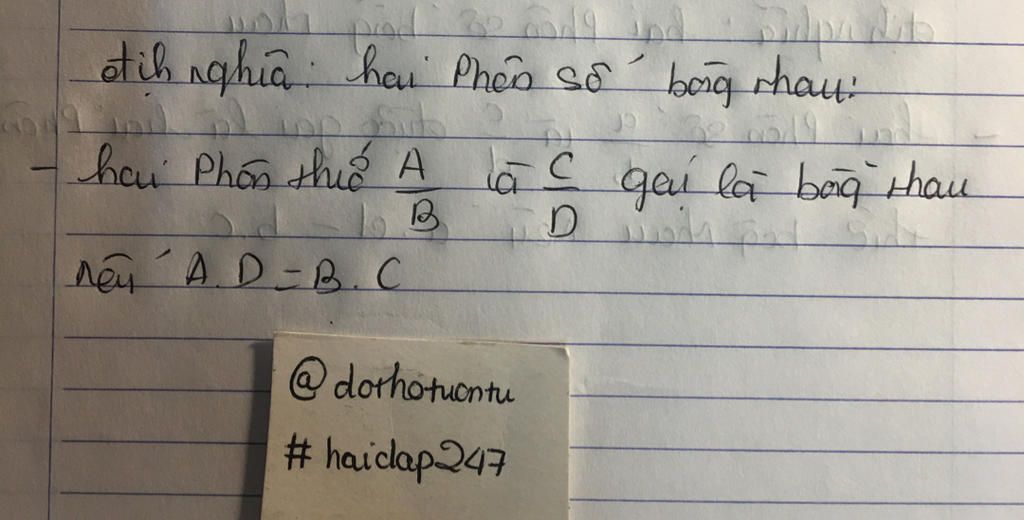 định nghĩa: hai Phân số bằng nhau:
- hai Phân thức A/B và C/D gọi là bằng nhau
nếu A.D = B.C
@dothotuontu
# haidap247